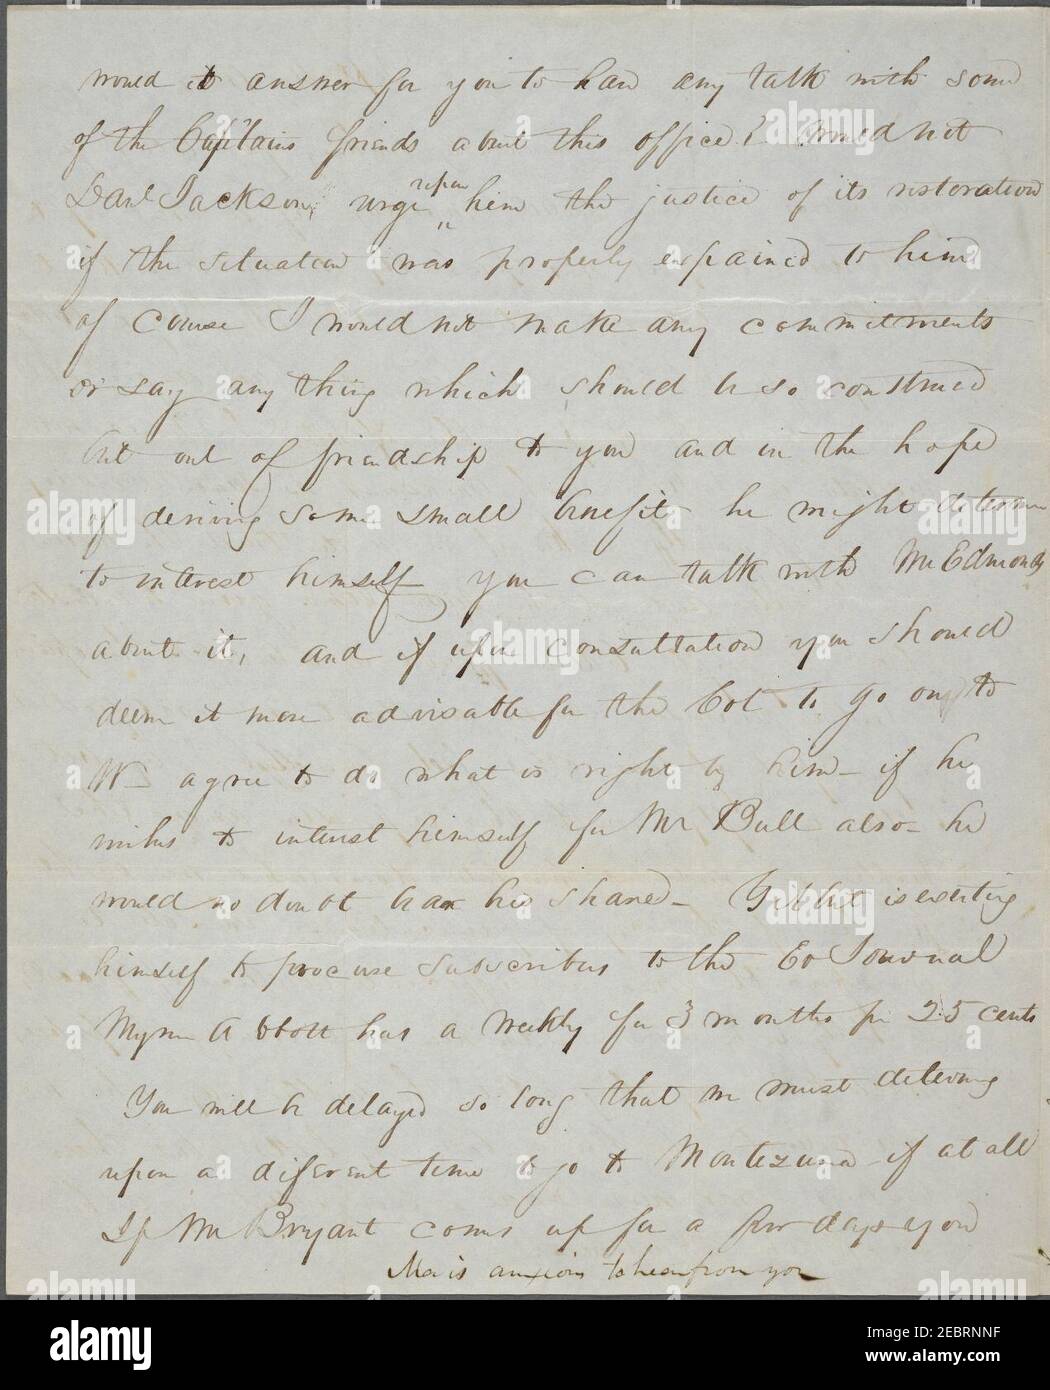 would it answer for you to have any talk with some
of the Captains friends about this office? Would not
Danl Jackson, urge upon him the justice of its restoration
if the situation was properly expained to him
of course I would not make any commitments
or say any thing which should be so construed
but out of friendship to you and in the hope
of deriving some small benefit he might determine
to interest himself you can talk with Mr Edmonds
about it, and if upon consultation you should
deem it more advisable for the Col to go on to
W— agree to do what is right by him — if he
wishes to interest himself for Mr Bull also — he
would no doubt bear his share — is exerting
himself to procure subscribers to the Eo Journal
Abbott has a weekly for 3 months for 25 cents
You will be delayed so long that we must determine
upon a different time to go to Montezuma if at all
If Mr Bryant comes up for a few days you
Ma is anxious to hear from you
alamy
Image ID: 2EBRNNF
www.alamy.com